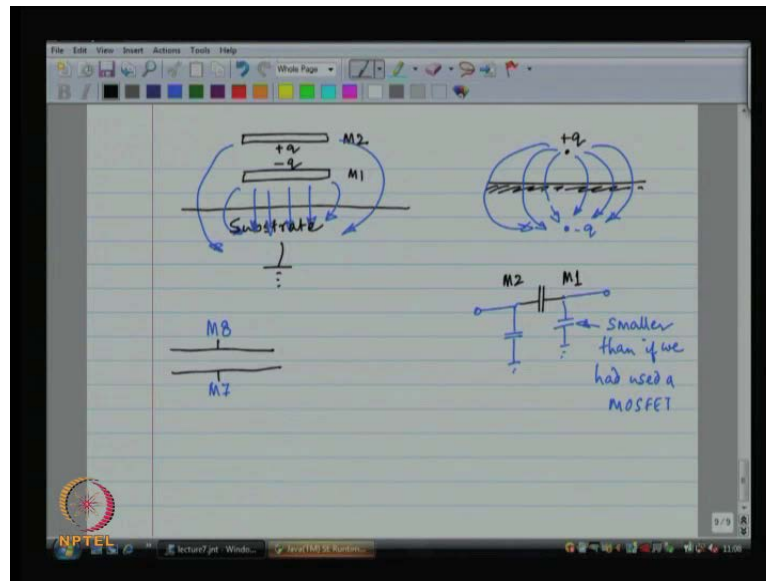 File Edit View Insert Actions Tools Help
Whole Page
B I
+q
M2
-q
M1
Substrate
+q
-q
M2 M1
smaller
than if we
had used a
MOSFET
M8
M7
9/9
NPTEL
lecture7.jnt - Windo...
Java(TM) SE Runtim...
11:08